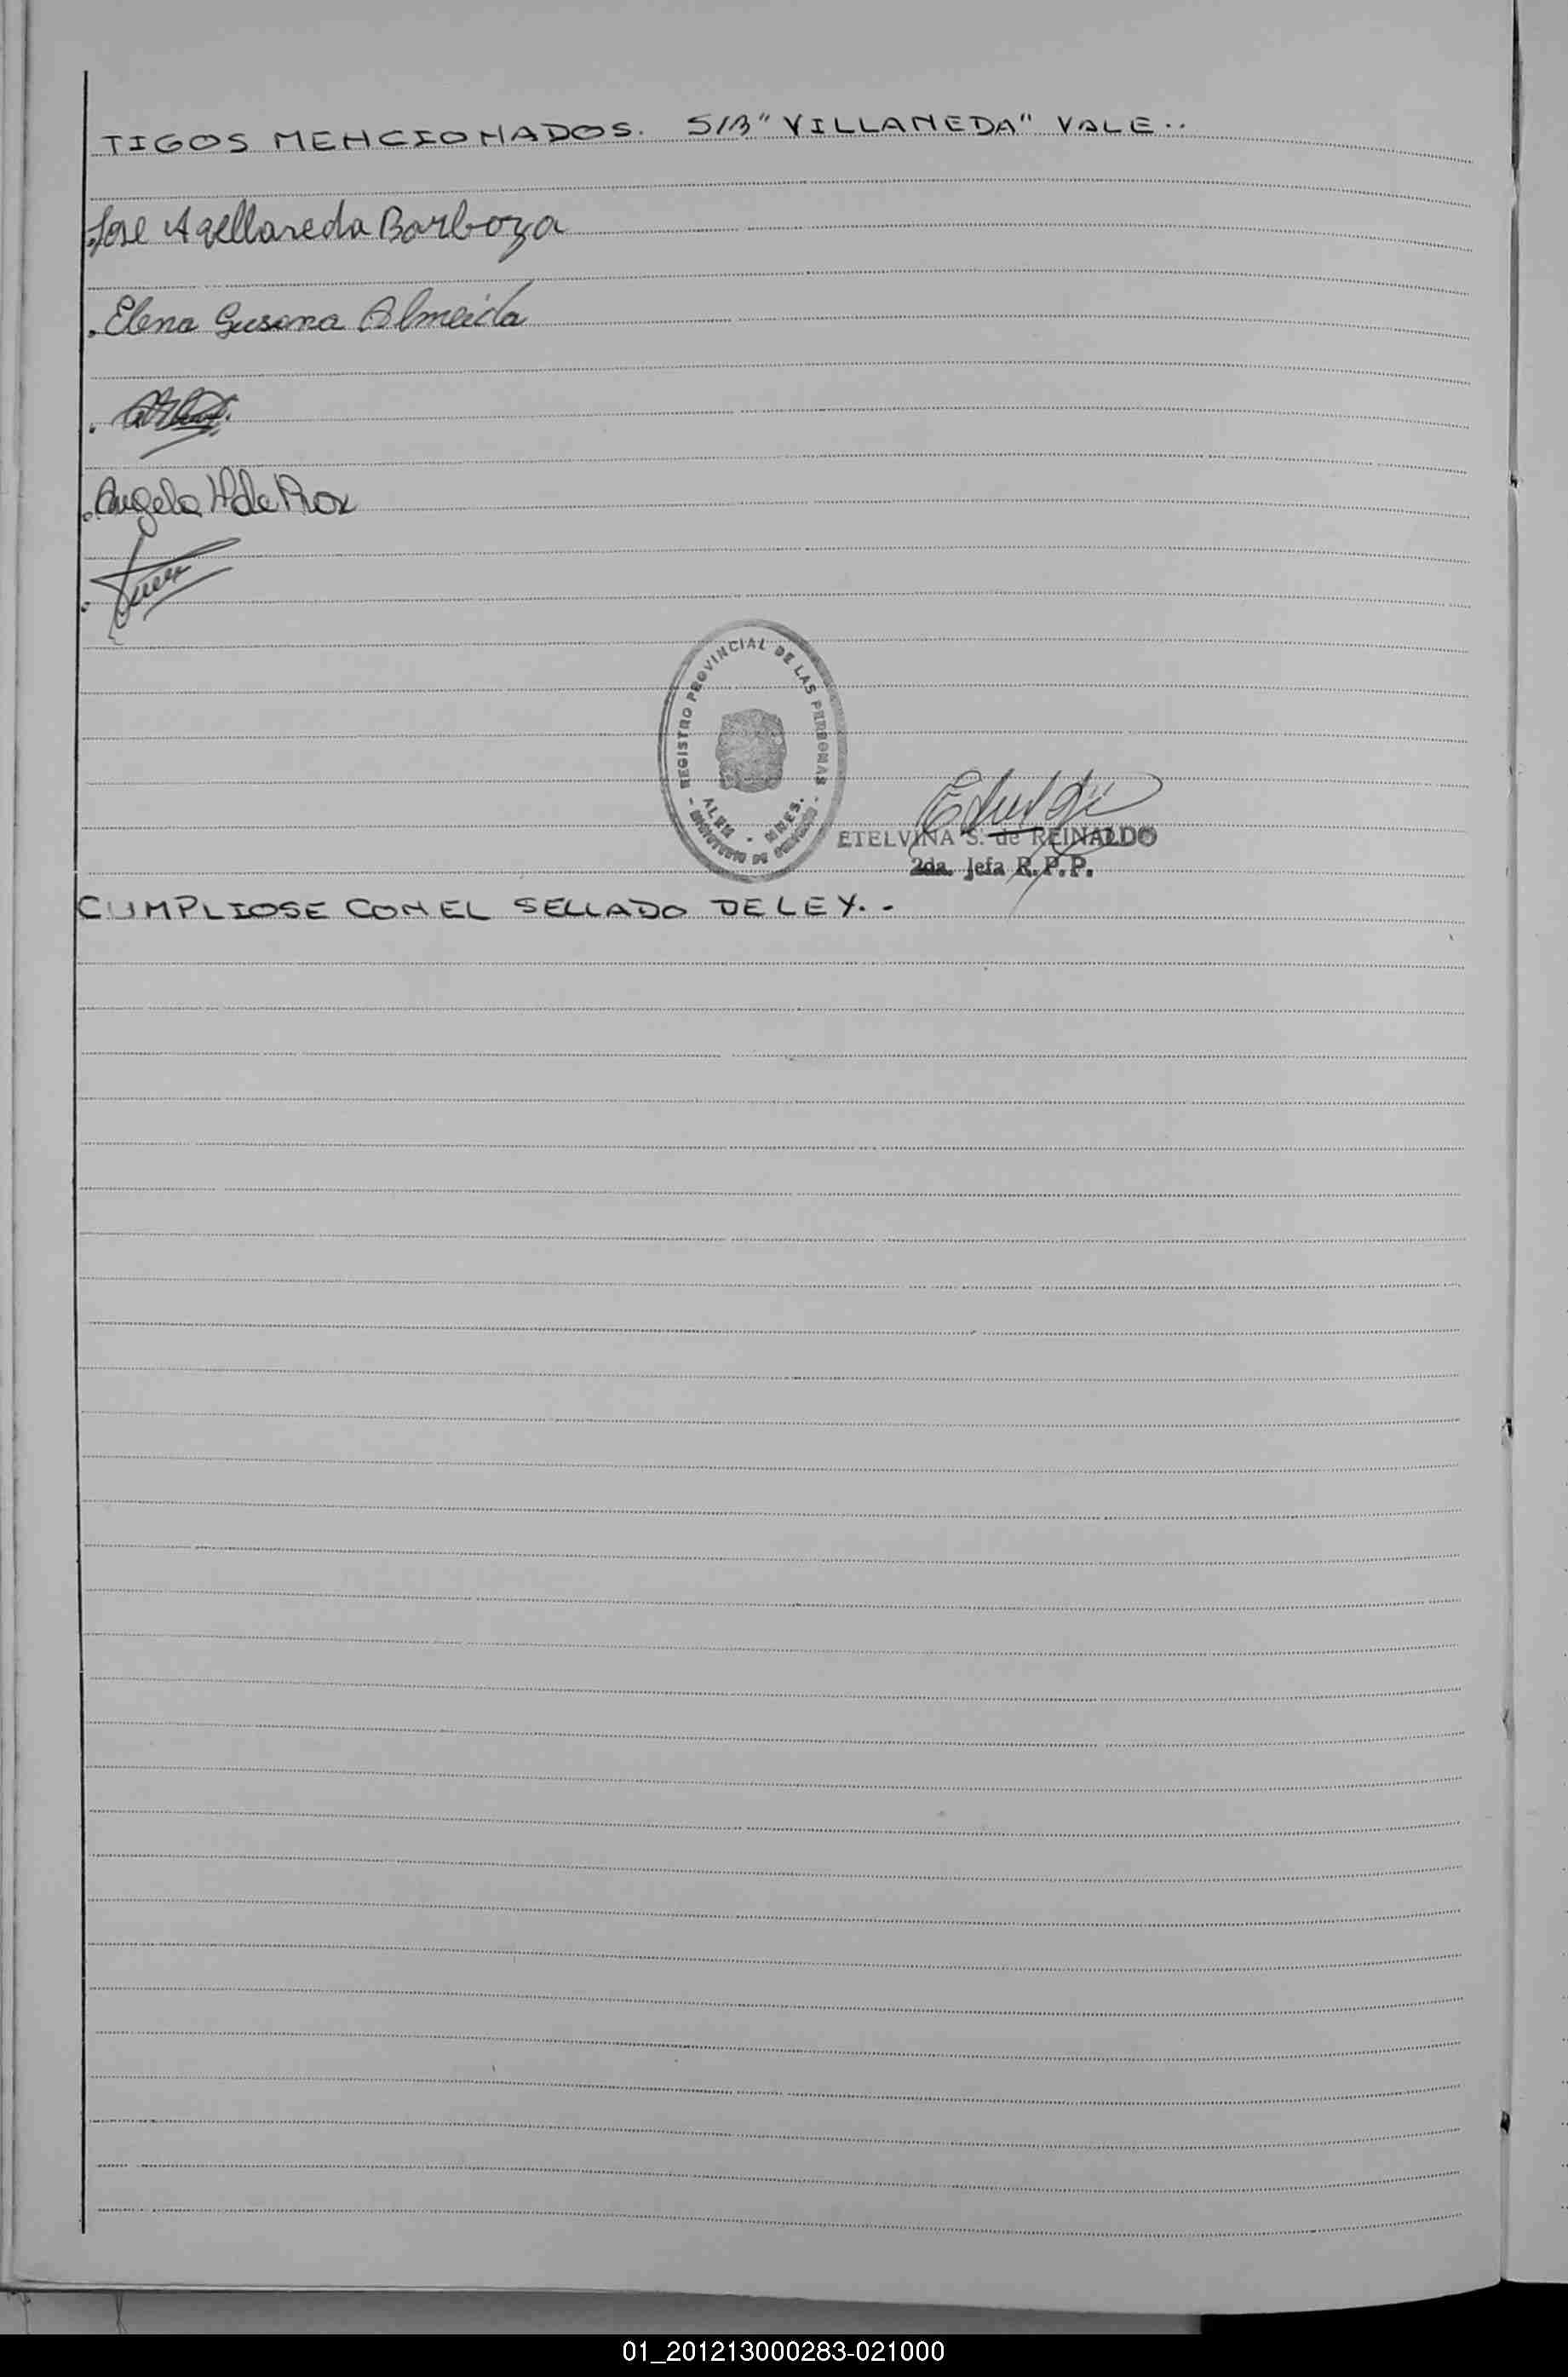 TIGOS MENCIONADOS. S/B "VILLANEDA" VALE..
Jose Avellaneda Barboza
Elena Susana Almeida
Angela H de
REGISTRO PROVINCIAL DE LAS PERSONAS
ALEM - MNES.
MINISTERIO DE GOBIERNO
ETELVINA S. de REINALDO
2da. Jefa R.P.P.
CUMPLIOSE CON EL SELLADO DE LEY.-
01_201213000283-021000